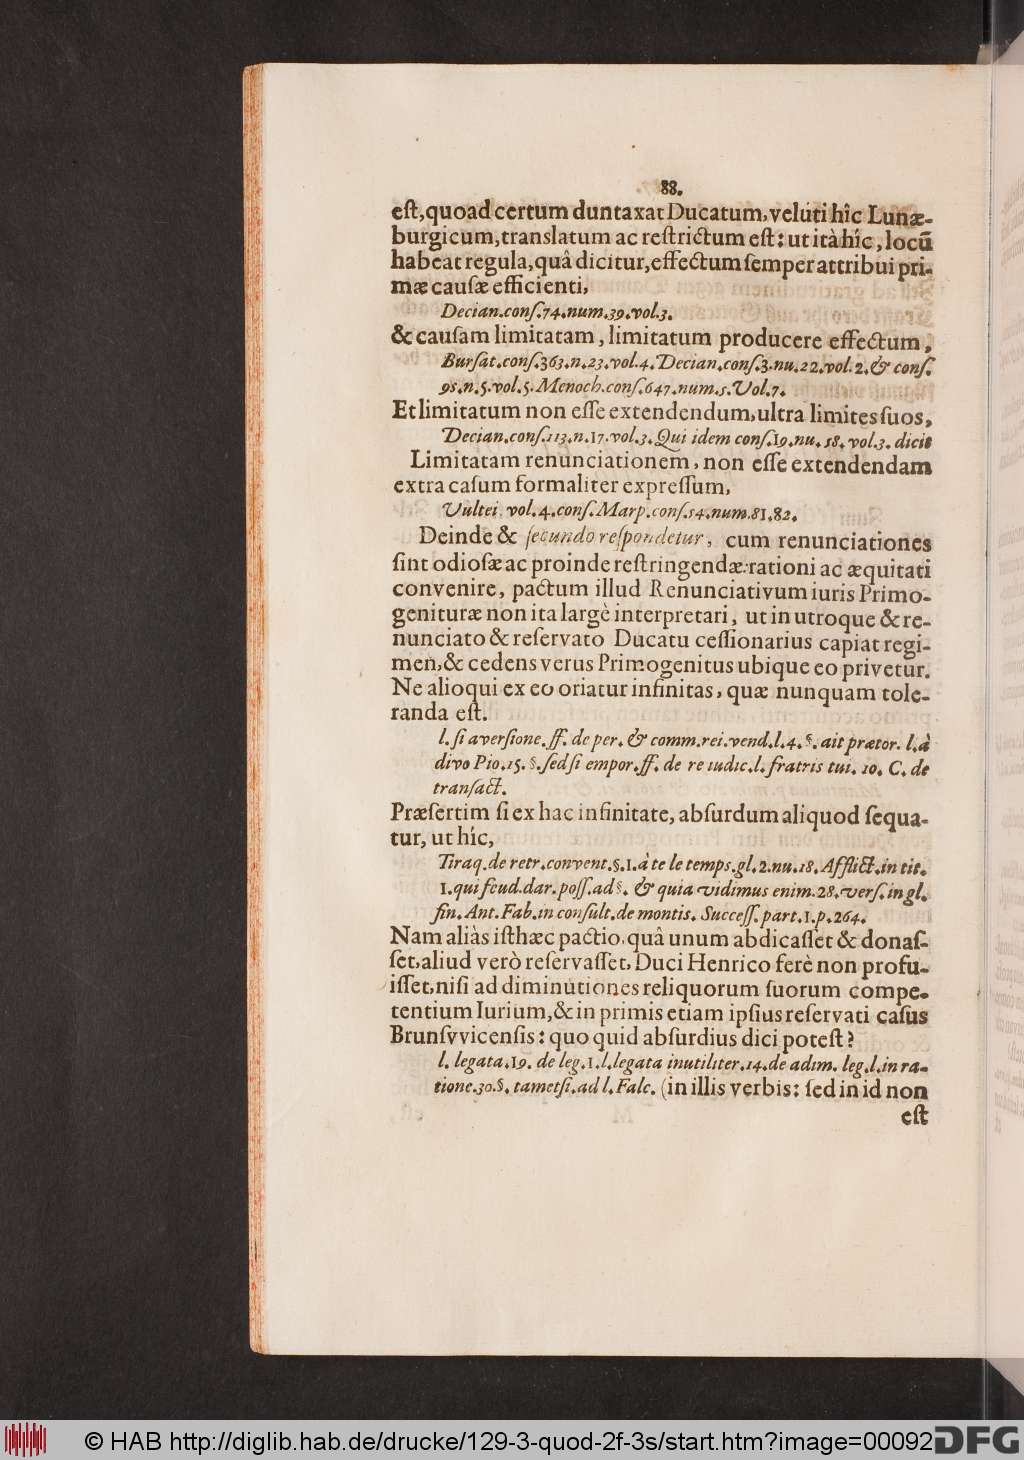 88.
eſt, quoad certum duntaxat Ducatum, veluti hîc Lunæ-
burgicum, translatum ac reſtrictum eſt: ut ità híc, locũ
habeat regula, quâ dicitur, effectum ſemper attribui pri-
mæ cauſæ efficienti,
Decian. conſ. 74. num. 39. vol. 3.
& cauſam limitatam, limitatum producere effectum,
Burſat. conſ. 363. n. 23. vol. 4. Decian. conſ. 3. nu. 22. vol. 2. & conſ.
95. n. 5. vol. 5. Menoch. conſ. 647. num. 5. Vol. 7.
Et limitatum non eſſe extendendum, ultra limites ſuos,
Decian. conſ. 113. n. 17. vol. 3. Qui idem conſ. 19. nu. 58. vol. 3. dicit
Limitatam renunciationem, non eſſe extendendam
extra caſum formaliter expreſſum,
Vultei. vol. 4. conſ. Marp. conſ. 54. num. 81. 82.
Deinde & ſecundo reſpondetur, cum renunciationes
ſint odioſæ ac proinde reſtringendæ: rationi ac æquitati
convenire, pactum illud Renunciativum iuris Primo-
genituræ non ita largè interpretari, ut in utroque & re-
nunciato & reſervato Ducatu ceſſionarius capiat regi-
men, & cedens verus Primogenitus ubique eo privetur.
Ne alioqui ex eo oriatur infinitas, quæ nunquam tole-
randa eſt.
l. ſi averſione. ff. de per. & comm. rei. vend. l. 4. §. ait prætor. l. à
divo Pio. 15. §. ſed ſi empor. ff. de re iudic. l. fratris tui. 10. C. de
tranſact.
Præſertim ſi ex hac infinitate, abſurdum aliquod ſequa-
tur, ut híc,
Tiraq. de retr. convent. §. 1. à te le temps. gl. 2. nu. 18. Afflict. in tit.
1. qui feud. dar. poſſ. ad §. & quia vidimus enim. 28. verſ. in gl.
fin. Ant. Fab. in conſult. de montis. Succeſſ. part. 1. p. 264.
Nam aliàs iſthæc pactio, quâ unum abdicaſſet & donaſ-
ſet, aliud verò reſervaſſet, Duci Henrico ferè non profu-
iſſet, niſi ad diminutiones reliquorum ſuorum compe-
tentium Iurium, & in primis etiam ipſius reſervati caſus
Brunſvvicenſis: quo quid abſurdius dici poteſt?
l. legata. 19. de leg. 1. l. legata inutiliter. 14. de adim. leg. l. in ra-
tione. 30. §. tametſi. ad l. Falc. (in illis verbis: ſed in id non
eſt
© HAB http://diglib.hab.de/drucke/129-3-quod-2f-3s/start.htm?image=00092
DFG